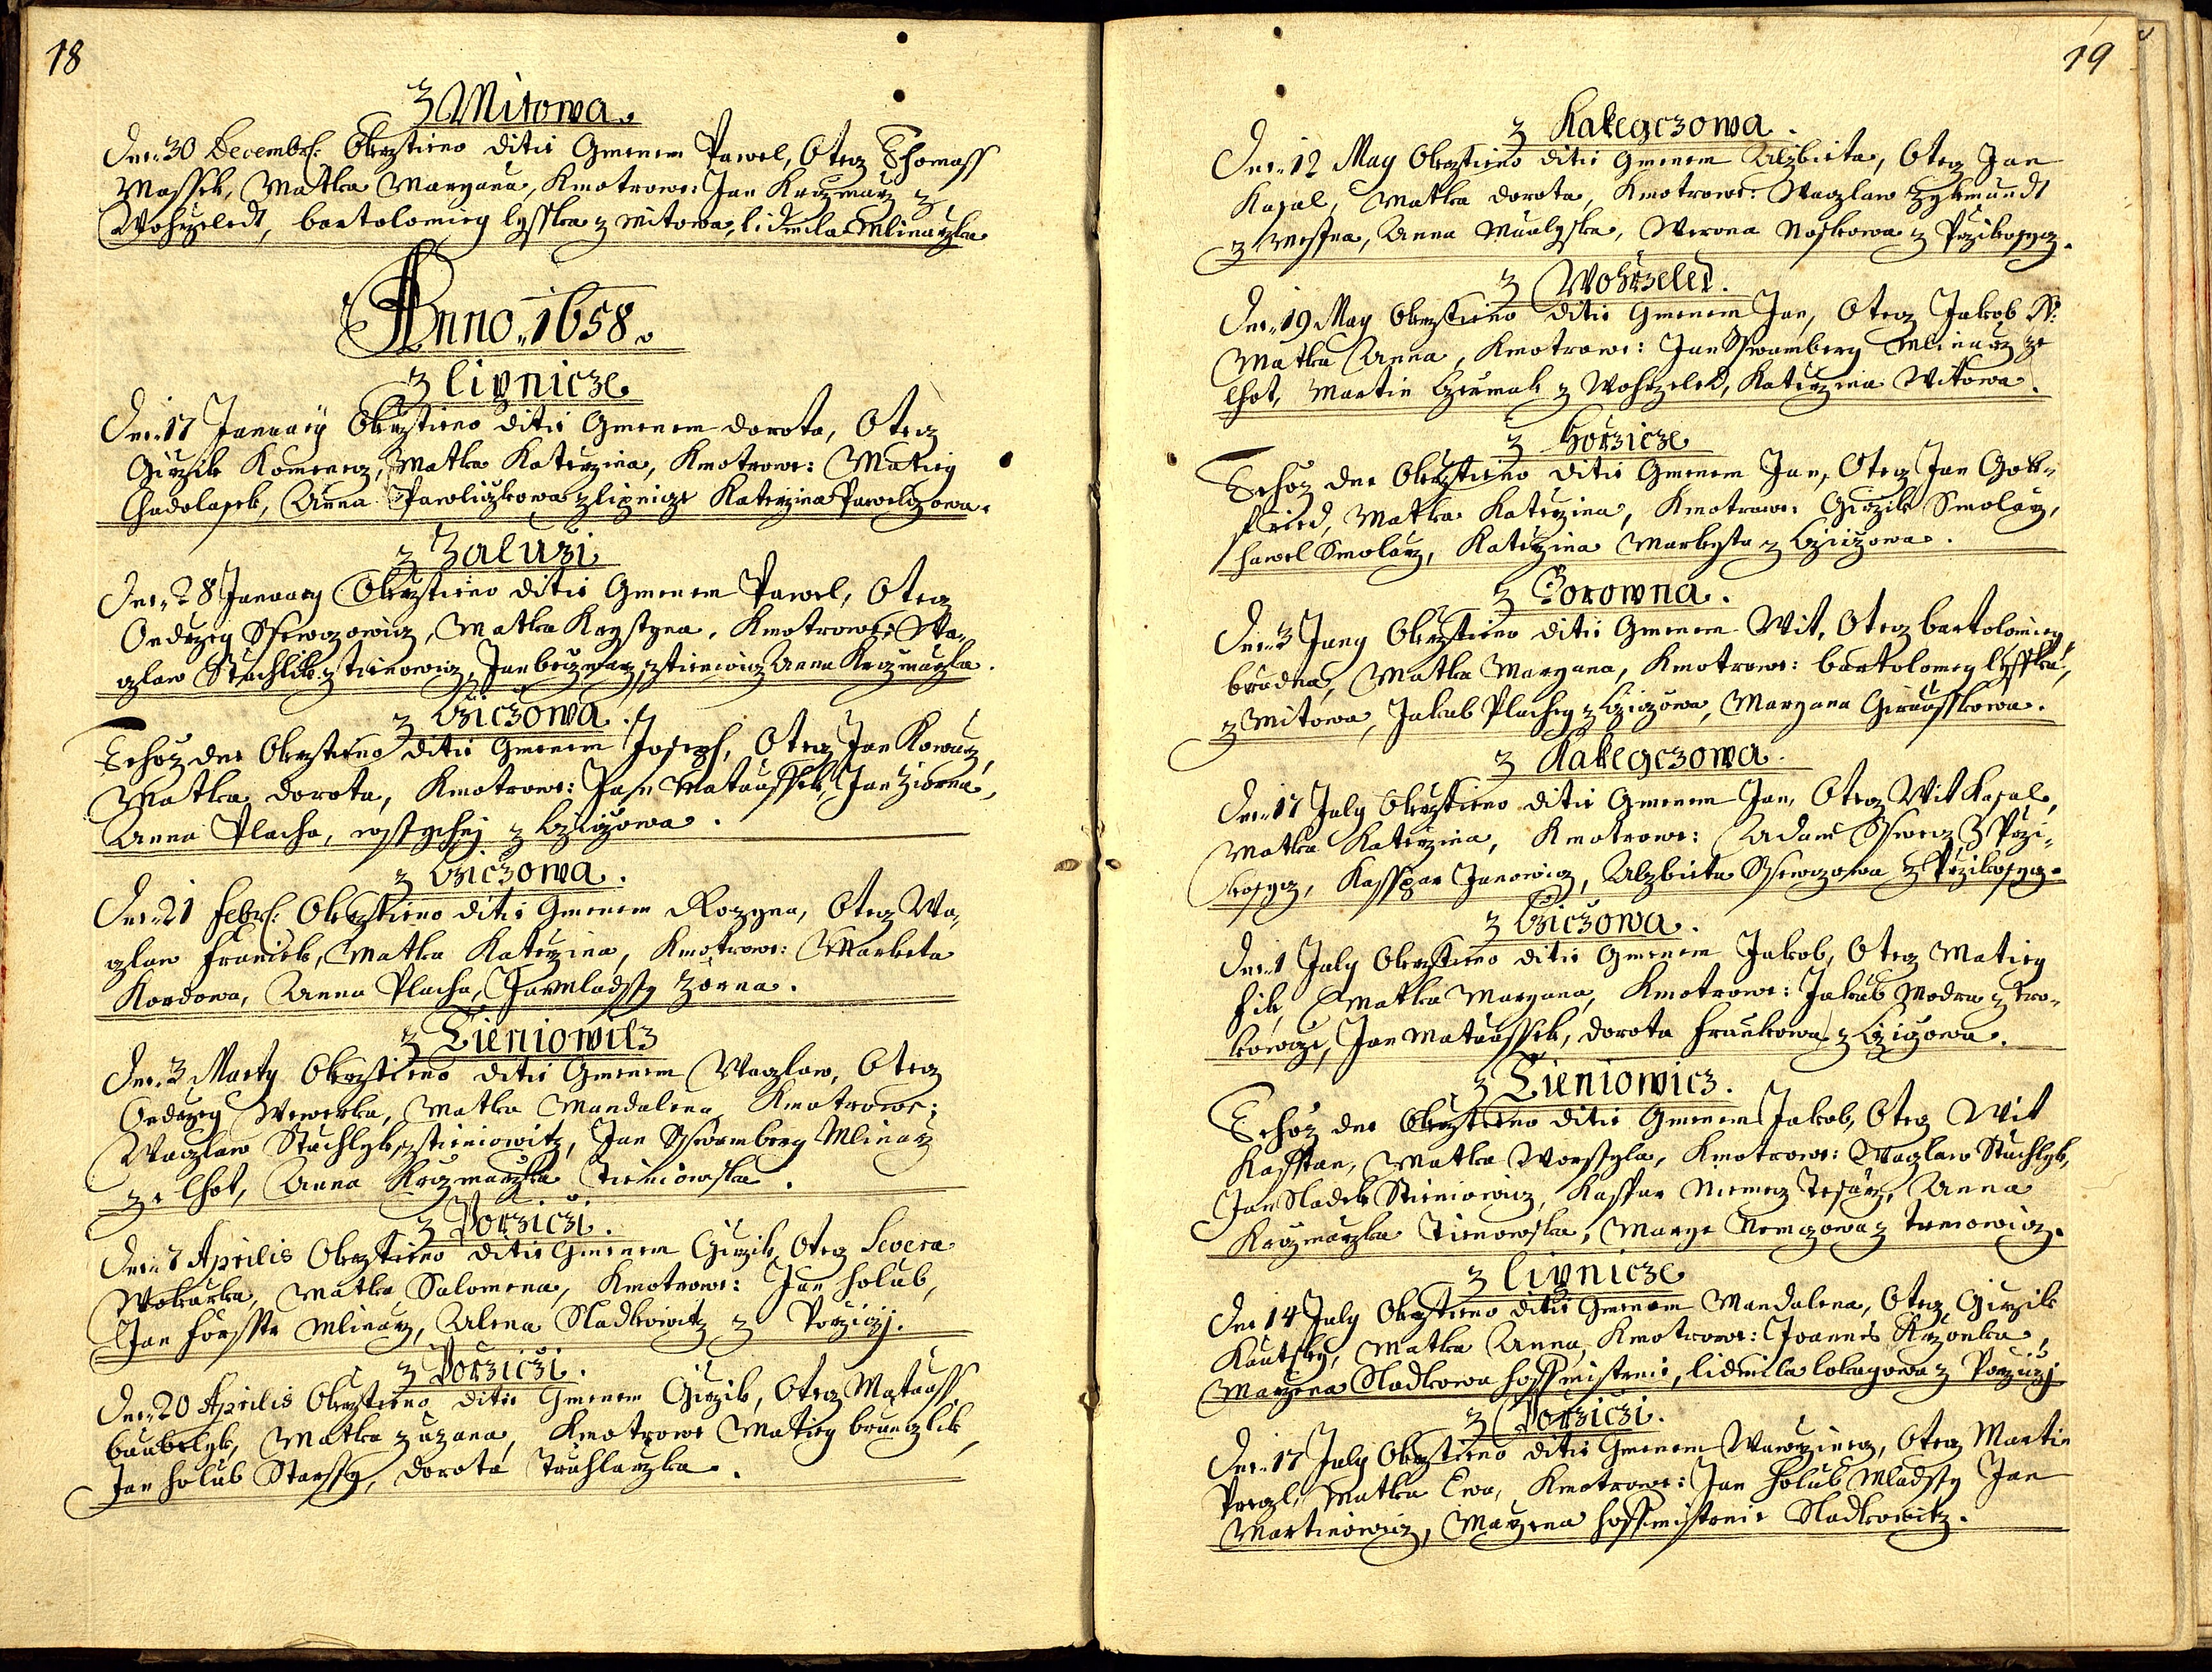 18
z Mitowa.
Dne 30 Decembr: Okrzstieno ditie Gmenem Pawel, Otecz Thomass
Massek, Matka Maryana, Kmotrowe: Jan Krczmarz z
Wohrzeledt, bartolomieg lysska z Mitowa, lidmila Mlinarzka
Anno. 1658.
z lipnicze
Dne 17 January Okrzstieno ditie Gmenem dorota, Otecz
Girzik Komenecz, Matka Katerzina, Kmotrowe: Matieg
Chadolasek, Anna Pawliczkowa z lipnicze Katerzina Paweltzowa.
z Zaluzi
Dne 28 January Okrzstieno ditie Gmenem Pawel, Otecz
Ondrzeg Ssewczowicz, Matka Krystyna, Kmotrowe: Wa-
czlaw Stuchlik z tienowicz, Jan z tieniowicz Anna Krczmarzka.
z Cziczowa.
Tehoz dne Okrzstieno ditie Gmenem Joseph, Otecz Jan Kowarz,
Matka dorota, Kmotrowe: Jan Mataussek, Jan Ziorna,
Anna Placha, wssychni z Cziczowa.
z Cziczowa.
Dne 21 febr: Okrzstieno ditie Gmenem Rozyna, Otecz Wa-
czlaw franiek, Matka Katerzina, Kmotrowe: Marketa
Kordowa, Anna Placha, Jan Mladssy Zorna.
z Tieniowitz
Dne 3 Marty Okrzstieno ditie Gmenem Waczlaw, Otecz
Ondrzeg Wewerka, Matka Mandalena Kmotrowe:
Waczlaw Stuchlyk z tieniowitz, Jan Sswamberg Mlinarz
ze lhot, Anna Krczmarzka Tieniowska.
z Porziczi.
Dne 7 Aprilis Okrzstieno ditie Gmenem Girzik Otecz Severa
Wokurka, Matka Salomena, Kmotrowe: Jan holub,
Jan forsste Mlinarz, Alena Sladkowitz z Porziczj.
z Porziczi.
Dne 20 Aprilis Okrzstieno ditie Gmenem Girzik, Otecz Matauss
baubelyk, Matka zuzana, Kmotrowe Matieg brunczlik
Jan holub Starssy, dorota Truhlarzka.
19
z Kakegczowa.
Dne 12 May Okrzstieno ditie Gmenem Alzbieta, Otecz Jan
Kasal, Matka dorota, Kmotrowe: Waczlaw Zykmundt
z Mesna, Anna, Werona Noskowa z Przikosycz.
z Wohrzeled.
Dne 19 May Okrzstieno ditie Gmenem Jan, Otecz Jakob N:
Matka Anna, Kmotrowe: Jan Sswamberg Mlinarz ze
lhot, Martin Czermak z Wohrzeled, Katerzina Witowa.
z horzicze
Tehoz dne Okrzstieno ditie Gmenem Jan, Otecz Jan Gott-
fried, Matka Katerzina, Kmotrowe: Girzik Smolarz,
hawel Smolarz, Katerzina Markysta z Cziczowa.
z Borowna.
Dne 3 Juny Okrzstieno ditie Gmenem Wit, Otecz bartolomieg
brudna, Matka Maryana, Kmotrowe: bartolomeg lysska,
z Mitowa, Jakub Placheg z Cziczowa, Maryana Girausskowa.
z Kakegczowa.
Dne 17 July Okrzstieno ditie Gmenem Jan, Otecz Wit Kasal,
Matka Katerzina, Kmotrowe: Adam Sswecz z Przi-
kosycz, Kasspar Janowicz, Alzbieta Ssewczowa z Przikosycz.
z Cziczowa.
Dne 1 July Okrzstieno ditie Gmenem Jakob, Otecz Matieg
fik, Matka Maryana, Kmotrowe: Jakub Modra z Kro-
kowcze, Jan Mataussek, dorota frankowa z Cziczowa.
z Tieniowicz.
Tehoz dne Okrzstieno ditie Gmenem Jakob, Otecz Wit
Kasstan, Matka Worssyla, Kmotrowe: Waczlaw Stuchlyk,
Jan Sladek Stieniowicz, Kaspar Niemecz Tesarz, Anna
Krczmarzka Tienowska, Marye Nemczowa z tieniowicz.
z lipnicze
Dne 14 July Okrzstieno ditie Gmenem Mandalena, Otecz Girzik
Kautsky, Matka Anna, Kmotrowe: Joannes Krzonka,
Maryena Sladkowa hoffmistrnie, lidmila lokagowa z Porziczj
z Porziczi.
Dne 17 July Okrzstieno ditie Gmenem Wawrzinecz, Otecz Martin
Preczl, Matka Ewa, Kmotrowe: Jan holub Mladssy Jan
Martinowicz, Maryena hoffmistrnie Sladkowitz.